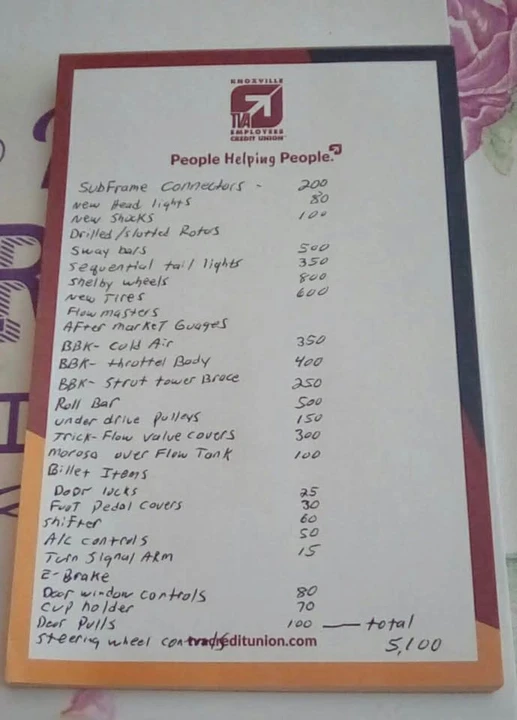 KNOXVILLE
TVA
EMPLOYEES
CREDIT UNION
People Helping People.
SubFrame Connectors - 200
New Head lights 80
New Shocks 100
Drilled/slutted Rotors
Sway bars 500
Sequential tail lights 350
Shelby wheels 800
New Tires 600
Flowmasters
AFter market Guages
BBK- Cold Air 350
BBK- throttel Body 400
BBK- Strut tower Brace 250
Roll Bar 500
under drive Pulleys 150
Trick-Flow Value covers 300
Moroso over Flow Tank 100
Billet Items
Door locks 25
Foot Pedal Covers 30
Shifter 60
A/c controls 50
Turn Signal Arm 15
E-Brake
Door window controls 80
Cup holder 70
Door Pulls 100 — total
Steering wheel controls 5,100
tvacreditunion.com